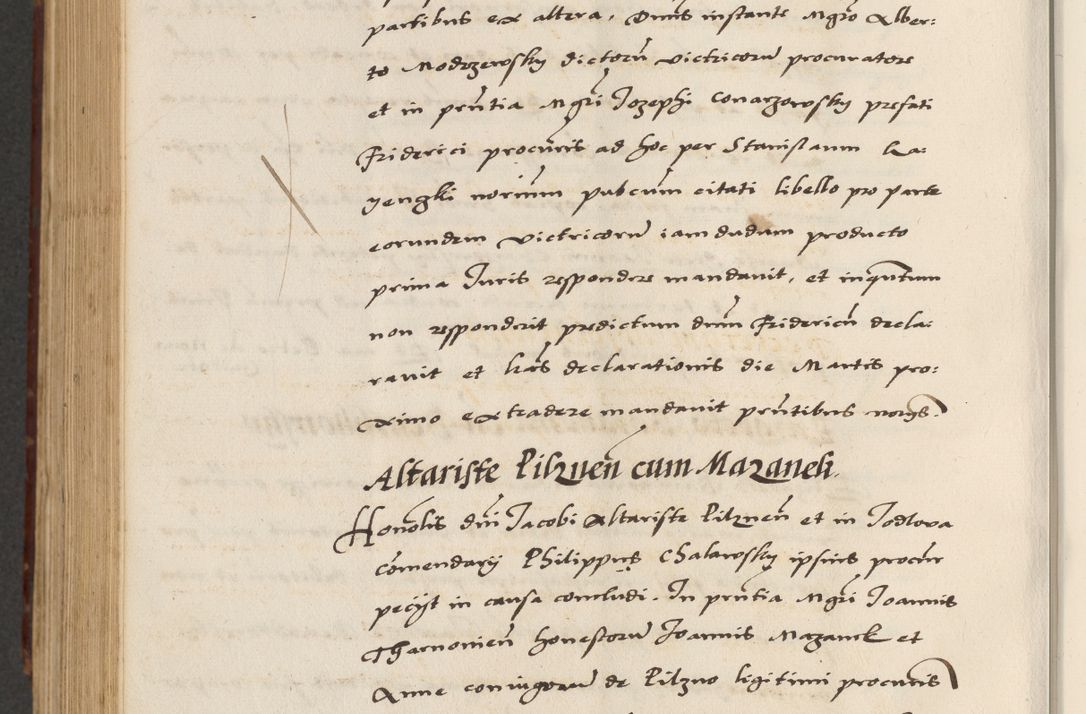 partibus ex altera, Dnus instante Mgro Alber:
to Modrzewsky dictoru victricoru procuratore
et in pñtia Mgri Jozephi Conarzowsky prefati
Friderici procuris ad hoc per Stanislaum Ka:
yengki noriuum pubcum citati libello pro parte
eorundem victricoru iamdudum producto
prima Juris respondere mandavit, et inqntum
non responderit predictum dnum Fridericu decla:
ravit et lras declarationis die Martis pro:
ximo extradere mandavit pntibus norys.
Altariste Pilznen cum Mazaneli
Honolis dni Jacobi Altariste Pilznen et in Jodlova
comendary Philippus Chalawsky ipsius procur
pecyt in causa concludi. In pntia Mgri Joannis
Tharnovien honestoru Joannis Mazanek et
Anne coniugoru de Pilzno legitimi procuris